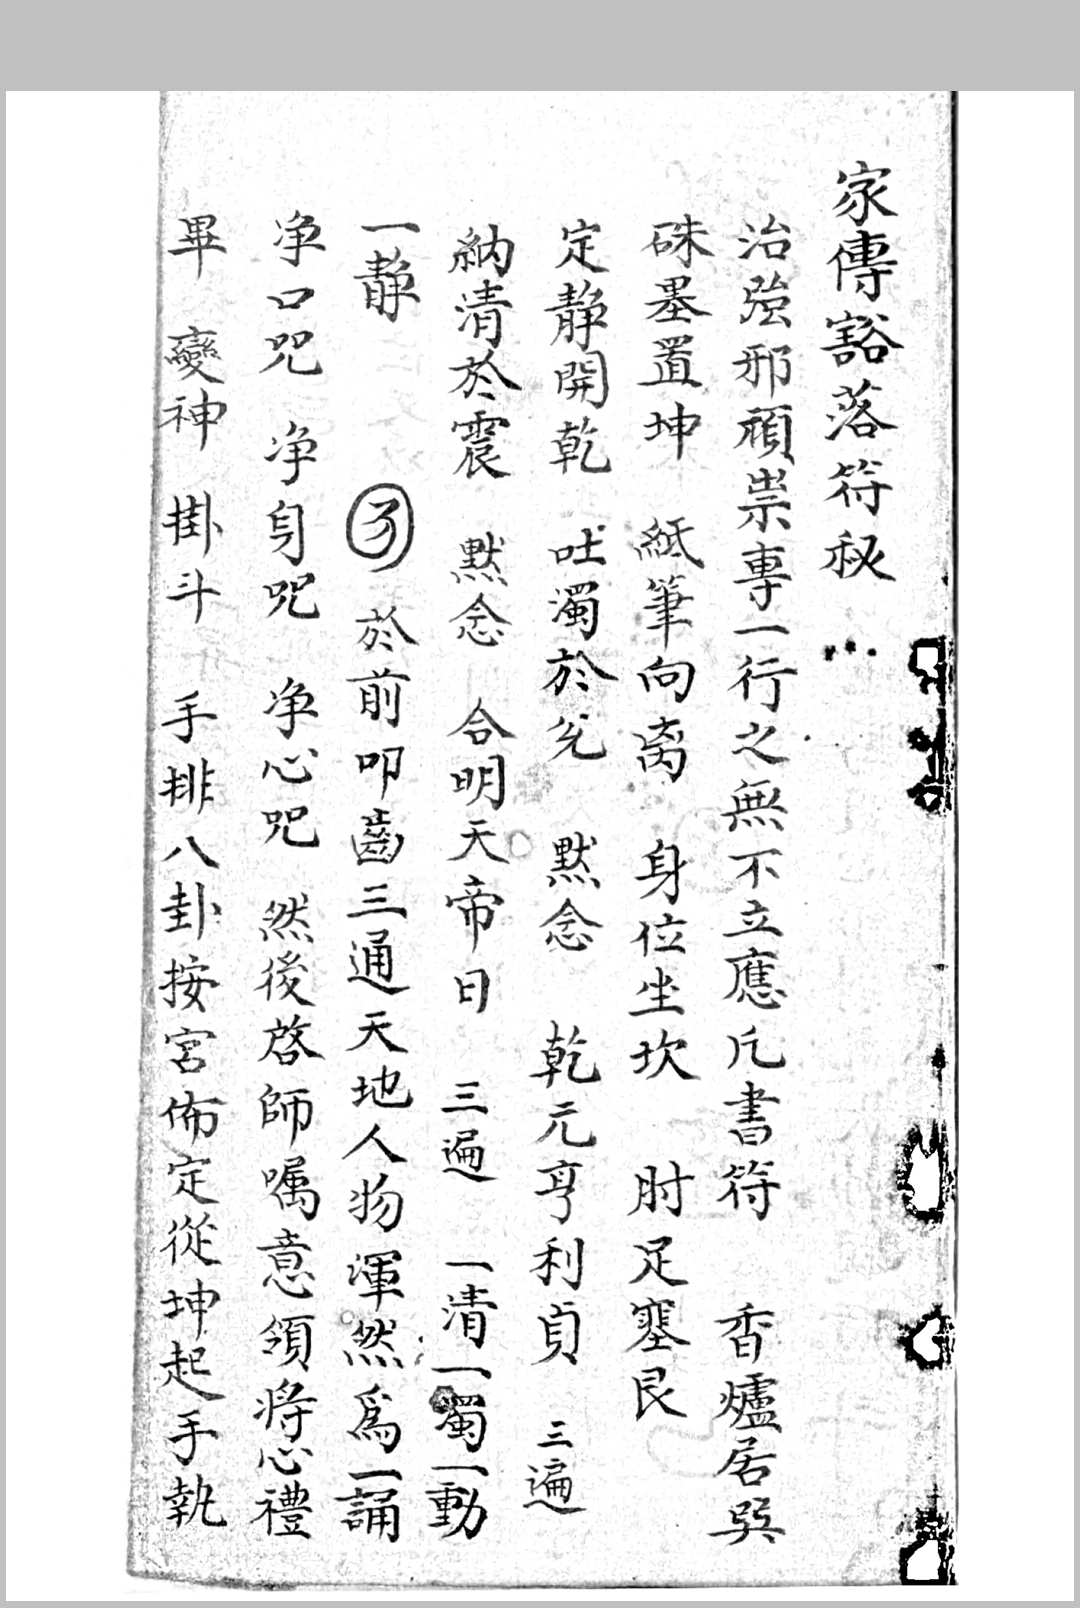 家傳豁落符秘
治強邪頑祟專一行之無不立應凢書符　香爐居巽
硃墨置坤　紙筆向离　身位坐坎　肘足塞艮
定静開乾　吐濁於兊　黙念　乾元亨利貞　三遍
納清於震　黙念　合明天帝日　三遍　一清一濁一動
一静　於前叩齒三通天地人物渾然爲一誦
净口咒　净身咒　净心咒　然後啓師嘱意領将心禮
畢　變神　掛斗　手排八卦按宮佈定從坤起手執